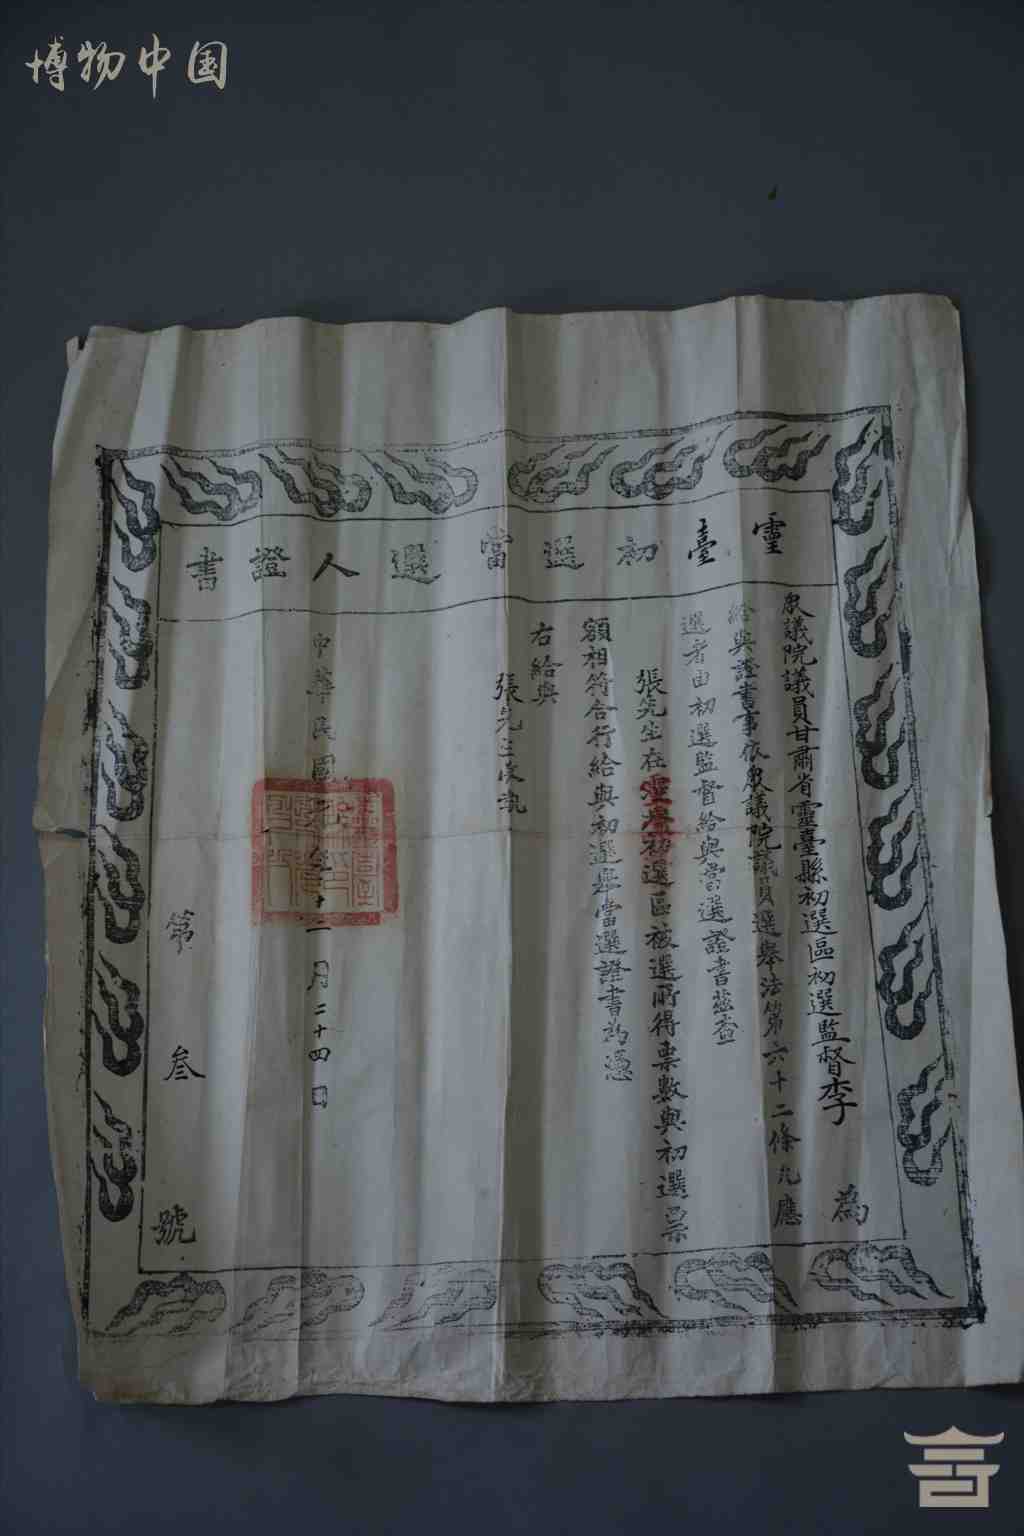 博物中国
靈臺初選當選人證書
衆議院議員甘肅省靈臺縣初選區初選監督李 為
給與證書事依衆議院議員選舉法第六十二條凡應
選者由初選監督給與當選證書茲查
張先生在靈臺初選區被選所得票數與初選票
額相符合行給與初選舉當選證書為憑
右給與
張先生
中華民國 年十二月二十四日
第叁號